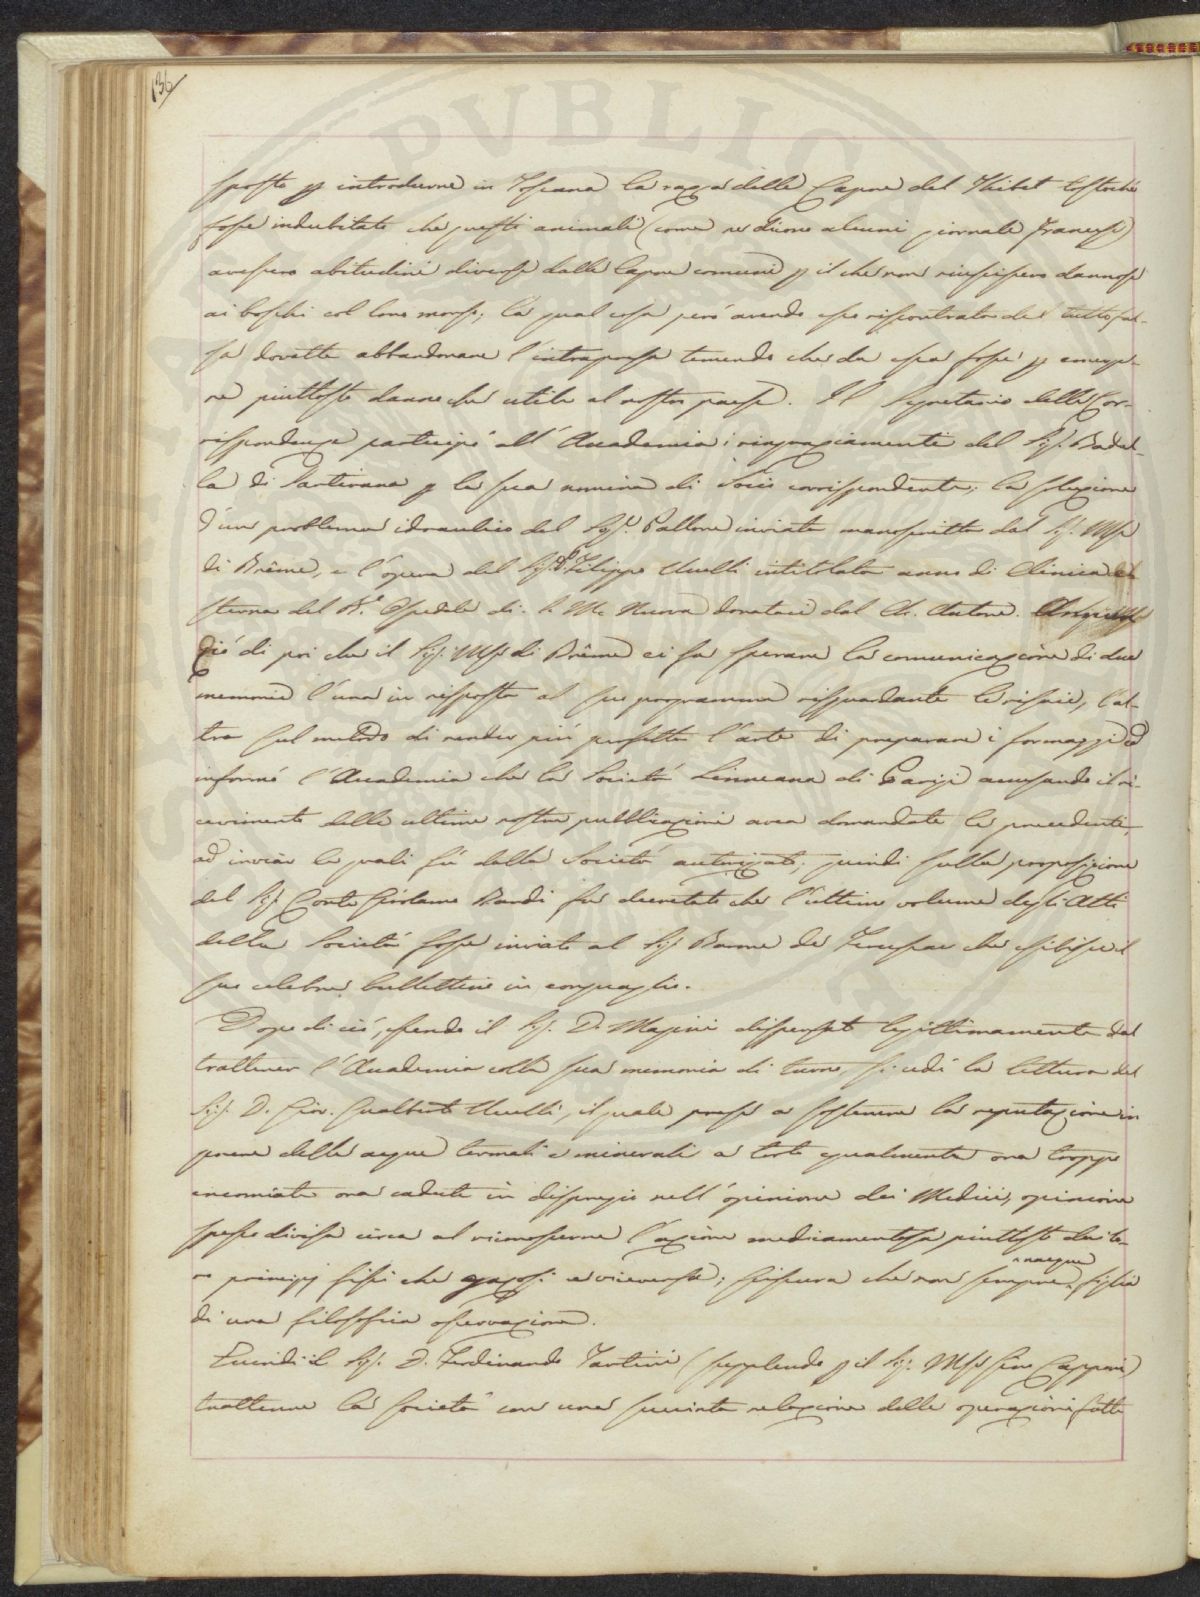 136
sposto p introdurre in Toscana la razza delle Capre del Thibet tostoché
fosse indubitato che questi animali (come ne dicono alcuni giornali Francesi)
avessero abitudini diverse dalle Capre comuni p il che non riuscissero dannosi
ai boschi col loro morso; la qual cosa però avendo esso riscontrato del tutto fal-
sa dovette abbandonare l'intrapresa temendo che da essa fosse p emerge-
re piuttosto danno che utile al nostro paese. Il Segretario delle Cor-
rispondenze partecipò all'Accademia i ringraziamenti del Sig.
di p la sua nomina di Socio corrispondente; la soluzione
d'un problema idraulico del Sig. inviata manoscritta dal Sig. Mse
di Brême, e l'opera del Sig. D. Filippo Uccelli intitolata anno di Clinica e
sterna del R.e Spedale di S. M. Nuova donataci dal Ch. Autore.
di poi che il Sig. Mse di Brême ci fa sperare la comunicazione di due
memorie l'una in risposta al suo programma risguardante le risaie, l'al-
tra sul metodo di render più perfetta l'arte di preparare i formaggi ed
informò l'Accademia che la Società Linneana di Parigi accusando il ri-
cevimento delle ultime nostre pubblicazioni avea domandate le precedenti
ad inviar le quali fu dalla Società autorizzato; quindi sulla proposizione
del Sig. Conte Girolamo Bardi fu decretato che l'ultimo volume degli Atti
della Società fosse inviato al Sig. Barone de Ferussac che esibisce il
suo celebre bullettino in conguaglio.
Dopo di ciò, essendo il Sig. D. Magini dispensato legittimamente dal
trattener l'Accademia colla sua memoria di turno, si udì la lettura del
Sig. D. Gio. Gualberto Uccelli, il quale prese a sostenere la reputazione in
genere delle acque termali e minerali a torto egualmente ora troppo
encomiate ora cadute in dispregio nell'opinione dei Medici, opinione
spesso divisa circa al riconoscerne l'azione medicamentosa piuttosto dai lo-
ro principj fissi che gazosi e viceversa; scissura che non sempre nacque figlia
di una filosofica osservazione.
Quindi il Sig. D. Ferdinando Tartini (supplendo p il Sig. Mse Gino Capponi)
trattenne la società con una succinta relazione delle operazioni fatte